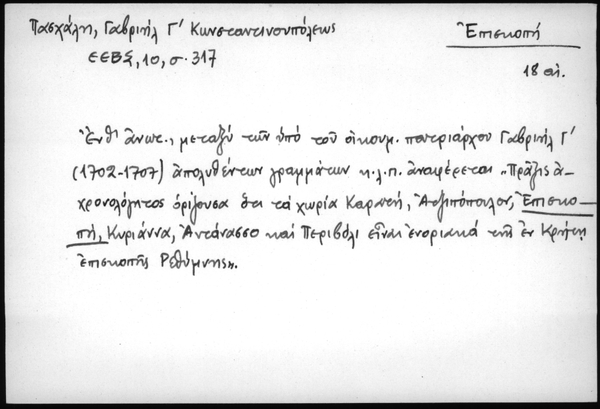 Πασχάλη, Γαβριήλ Γ' Κωνσταντινουπόλεως
Ἐπισκοπή
ΕΕΒΣ, 10, σ. 317
18 αἰ.
Ἔνθ' ἄνωτ., μεταξύ τῶν ὑπό τοῦ οἰκουμ. πατριάρχου Γαβριήλ Γ'
(1702-1707) ἀπολυθέντων γραμμάτων κ.λ.π. ἀναφέρεται „Πρᾶξις ἀ-
χρονολόγητος ὁρίζουσα ὅτι τά χωρία Καρωτή, Ἀτζιπόπουλον, Ἐπισκο-
πή, Κυριάννα, Ἀντάνασσο καί Περιβόλι εἶναι ἐνοριακά τῆς ἐν Κρήτῃ
ἐπισκοπῆς Ρεθύμνης».